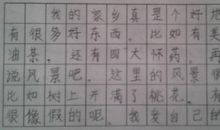 我的家乡真是个好地
有很多好东西。比如有美
油茶。还有四大怀药。再
说风景吧。这里的风景
比如树上开满了桃花。有
很像假的呢。我爱自己